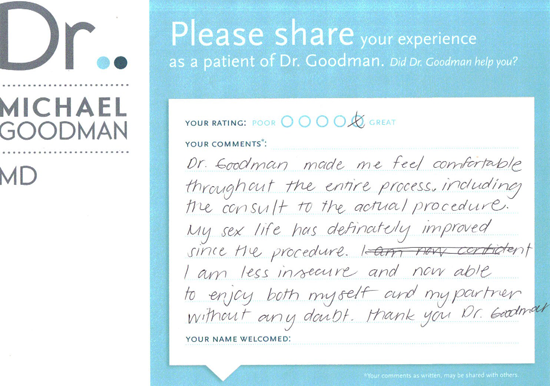 Dr..
MICHAEL
GOODMAN
MD
Please share your experience
as a patient of Dr. Goodman. Did Dr. Goodman help you?
YOUR RATING: POOR GREAT
YOUR COMMENTS*:
Dr. Goodman made me feel comfortable
throughout the entire process, including
the consult to the actual procedure.
My sex life has definately improved
since the procedure. I am now confident
I am less insecure and now able
to enjoy both myself and my partner
without any doubt. Thank you Dr. Goodman
YOUR NAME WELCOMED:
*Your comments as written, may be shared with others.